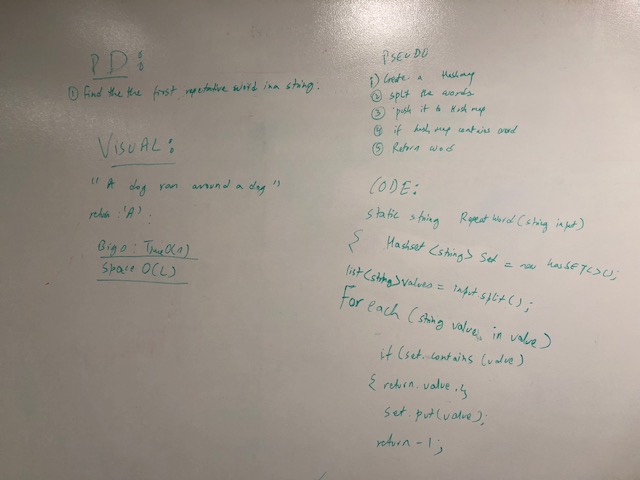 PD:
① Find the the first repetative word in a string.
VISUAL:
"A dog ran around a dog"
return : 'A'
Big O : Time O(n)
Space O(L)
PSEUDO
1) Create a Hashmap
② split the words
③ push it to Hash map
④ if hash map contains word
⑤ Return word
CODE:
static string RepeatWord(string input)
{ Hashset<string> Set = new hashSET<>();
list<string> values = input split();
For each (string value in value)
if (set.contains(value)
{ return value;}
set.put(value);
return -1;